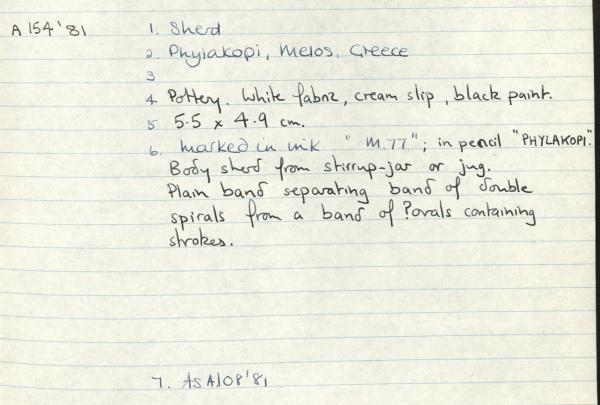 A 154'81
1. Sherd
2. Phylakopi, Melos, Greece
3
4 Pottery. White fabric, cream slip, black paint.
5 5.5 x 4.9 cm.
6. Marked in ink "M.77"; in pencil "PHYLAKOPI".
Body sherd from stirrup-jar or jug.
Plain band separating band of double
spirals from a band of ?ovals containing
strokes.
7. As A108'81